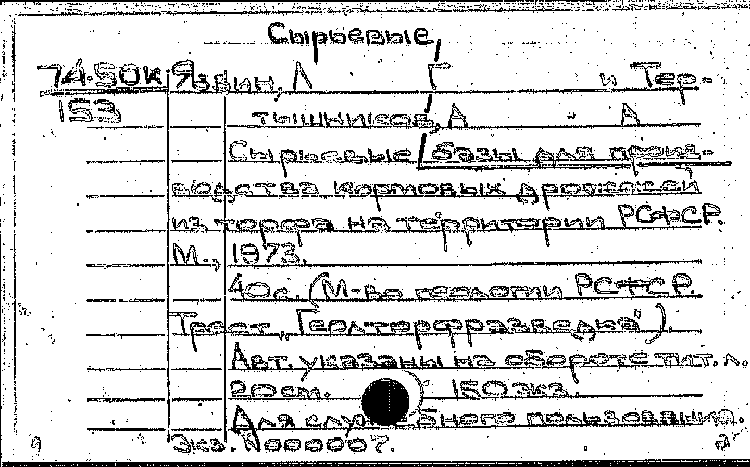 Сырьевые
74-50к Язвин, Л Г и Тер-
153 тышников, А А
Сырьевые базы для произ-
водства кормовых дрожжей
из торфа на территории РСФСР.
М., 1973.
40с. (М-во геологии РСФСР.
Трест "Геолторфразведка").
Авт. указаны на обороте тит. л.
20см. 150экз.
Для служебного пользования.
Экз. N000007.